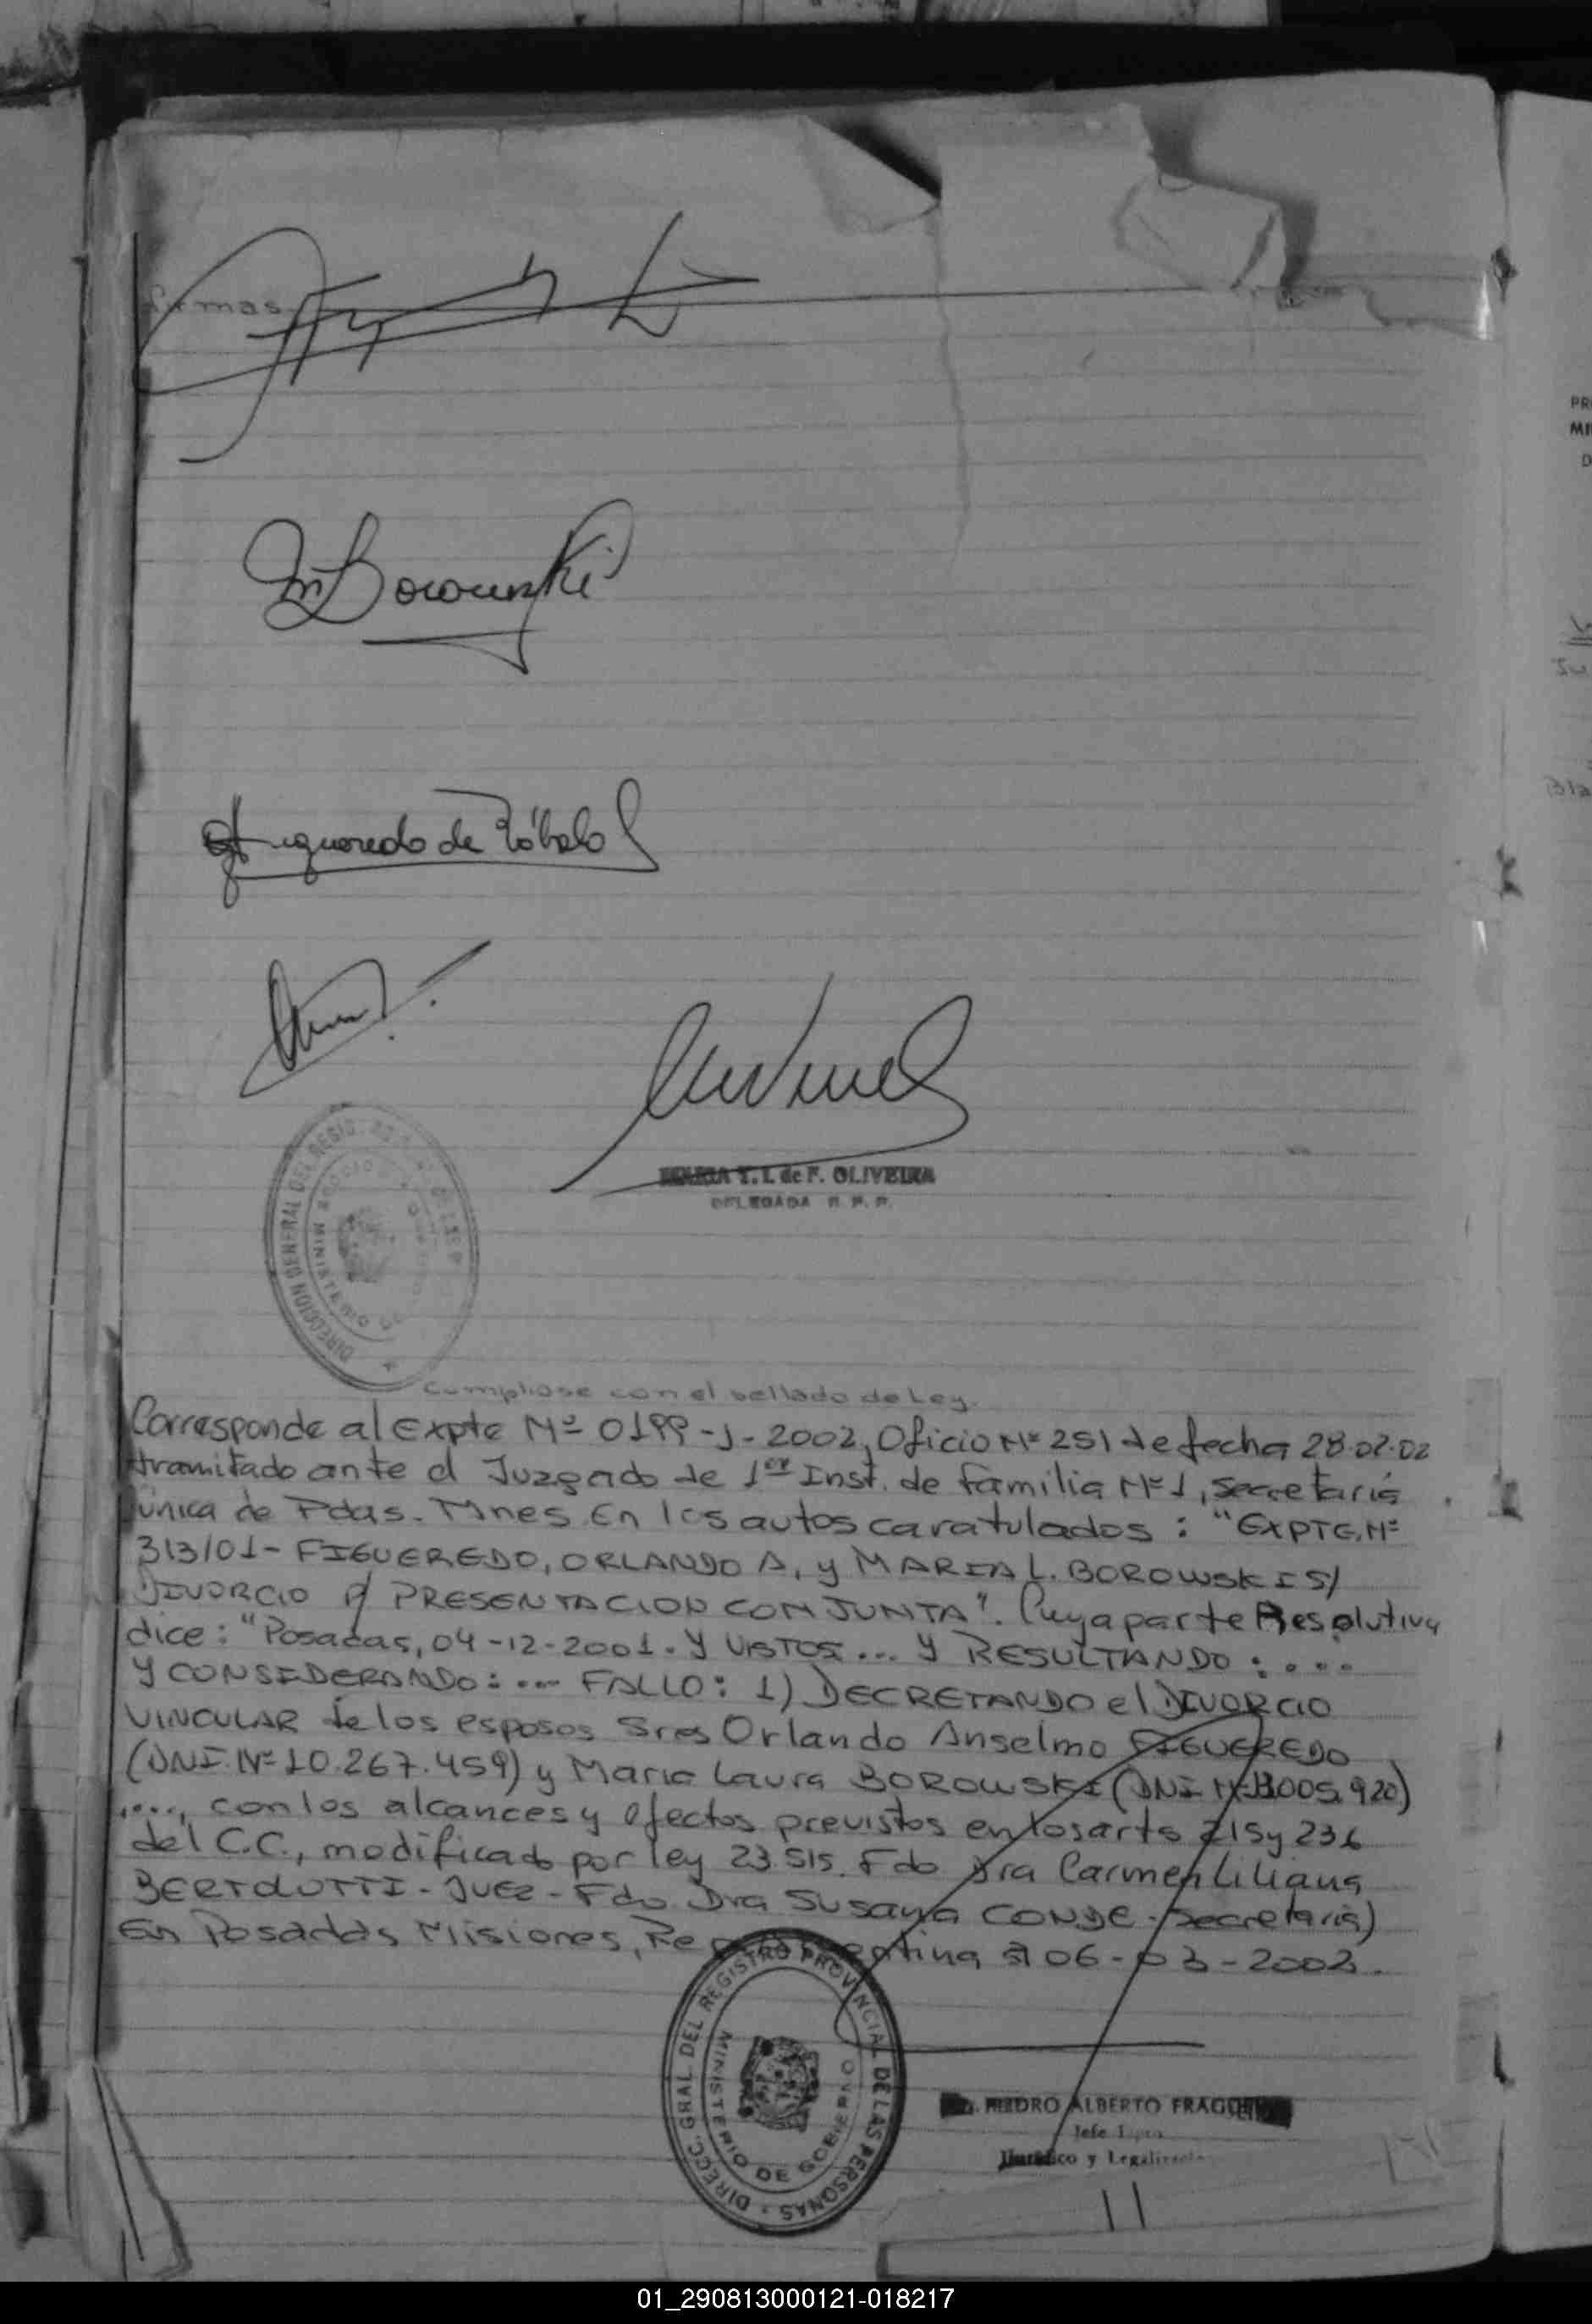 firmas
M Borowski
Figueredo de Róbalo
MARIA T. I. de F. OLIVEIRA
DELEGADA R. P. P.
DIRECCION GENERAL DEL REGIS
MINISTERIO
Cumpliose con el sellado de Ley.
Corresponde al Expte Nº 0199-J-2002, Oficio Nº 251 de fecha 28-02-02
tramitado ante el Juzgado de 1er Inst. de Familia Nº 1, Secretaria
única de Pdas. Mnes En los autos caratulados: "EXPTE. Nº
313/01- FIGUEREDO, ORLANDO A, y MARIA L. BOROWSKI S/
DIVORCIO p/ PRESENTACION CONJUNTA". Cuya parte Resolutiva
dice: "Posadas, 04-12-2001. Y VISTOS... Y RESULTANDO:....
Y CONSIDERANDO:... FALLO: 1) DECRETANDO el DIVORCIO
VINCULAR de los esposos Sres Orlando Anselmo FIGUEREDO
(DNI. Nº 10.267.459) y Maria Laura BOROWSKI (DNI Nº 005.920)
...., con los alcances y efectos previstos en los arts 215 y 236
del C.C., modificado por ley 23.515. Fdo Dra Carmen Liliana
BERTOLOTTI - JUEZ - Fdo Dra Susana CONDE - Secretaria)
En Posadas Misiones, Rep Argentina a 06-03-2002.
DIRECC. GRAL. DEL REGISTRO PROVINCIAL DE LAS PERSONAS
MINISTERIO DE GOBIERNO
PEDRO ALBERTO FRAGUEIRO
Jefe Dpto
Jurídico y Legalizaciones
01_290813000121-018217